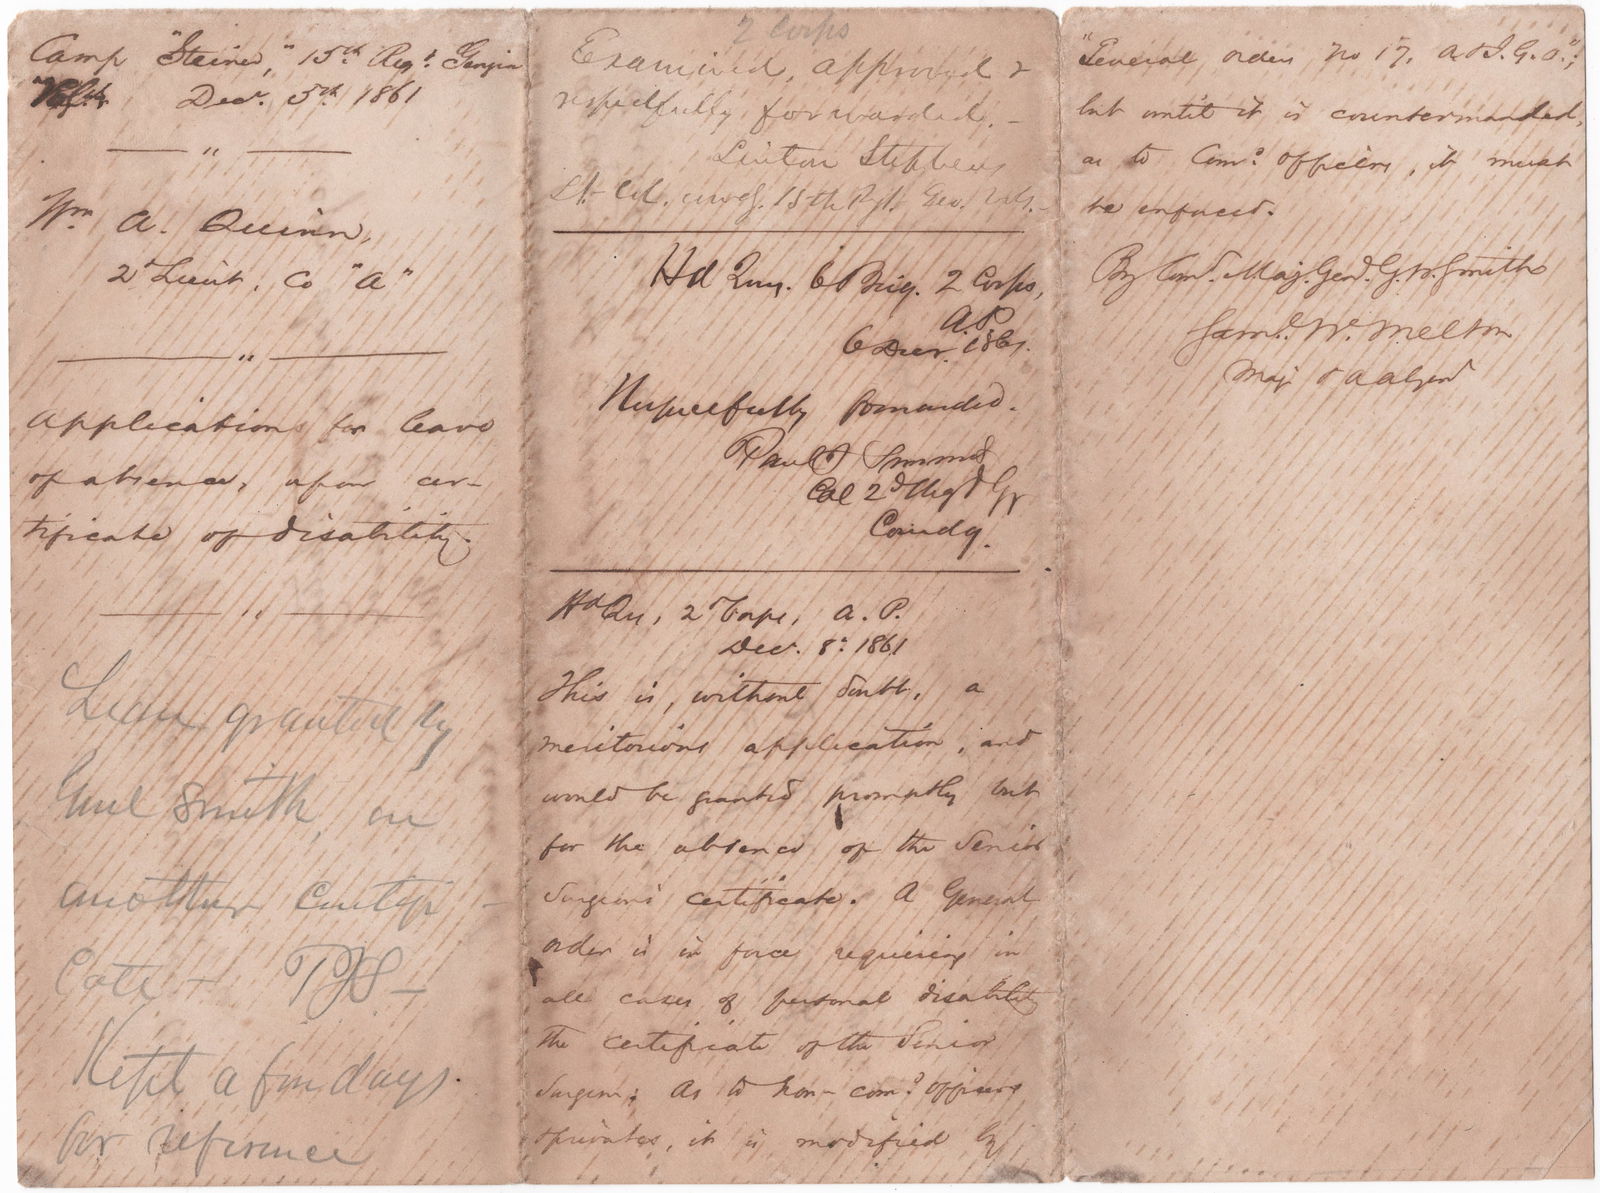 Camp "Steiner," 15th Regt. Georgia
Vols. Decr. 5th 1861
Wm. A. Quinn,
2d Lieut, Co "A"
Application for leave
of absence, upon cer-
tificate of disability.
Leave granted by
Genl Smith, on
another Certifi-
cate -
Kept a few days
for reference
2 Corps
Examined, approved &
respectfully forwarded. -
Linton Stephens
Lt. Col. comdg. 15th Rgt. Geo. Vols. -
Hd Qurs. 6 Brig. 2 Corps,
A.P.
6 Decr. 1861.
Respectfully forwarded.
Paul J Semmes
Col 2d Regt Ga
Comdg.
Hd Qrs, 2d Corps, A. P.
Dec. 8: 1861
This is, without doubt, a
meritorious application, and
would be granted promptly but
for the absence of the Senior
Surgeon's certificate. A General
order is in force requiring in
all cases of personal disability
the certificate of the Senior
Surgeon: As to non-comd. officers
& privates, it is modified by
"General orders No 17, A & I. G. O.";
but until it is countermanded,
as to Comd. officers, it must
be enforced.
By Comd. Maj. Genl. G. W. Smith
Saml. W. Melton
Maj & A A Genl